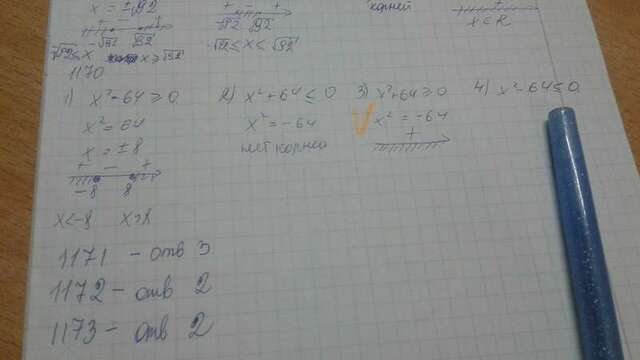 x = ±√92
+ - +
-√92 √92
√92 ≤ x x ≥ √92
+ - +
-√92 √92
-√92 ≤ x ≤ √92
корней
+
x ∈ R
1170
1) x² - 64 ≥ 0
x² = 64
x = ±8
+ - +
-8 8
x < -8 x > 8
2) x² + 64 ≤ 0
x² = -64
нет корней
3) x² + 64 ≥ 0
x² = -64
+
4) x² - 64 ≤ 0
1171 - отв 3
1172 - отв 2
1173 - отв 2